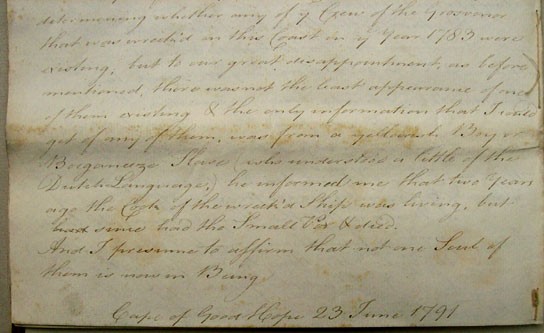 determining whether any of ye Crew of the Grosvenor
that was wreck'd on this Coast in ye Year 1783 were
existing, but to our great disappointment, as before
mentioned, there was not the least appearance of one
of them existing & the only information that I could
get of any of them, was from a yellowish Boy or
Slave (who understood a little of the
Dutch Language,) he informed me that two Years
ago the Cook of the wreck'd Ship was living, but
had since had the Small Pox & died.
And I presume to affirm that not one Soul of
them is now in Being
Cape of Good Hope 23 June 1791